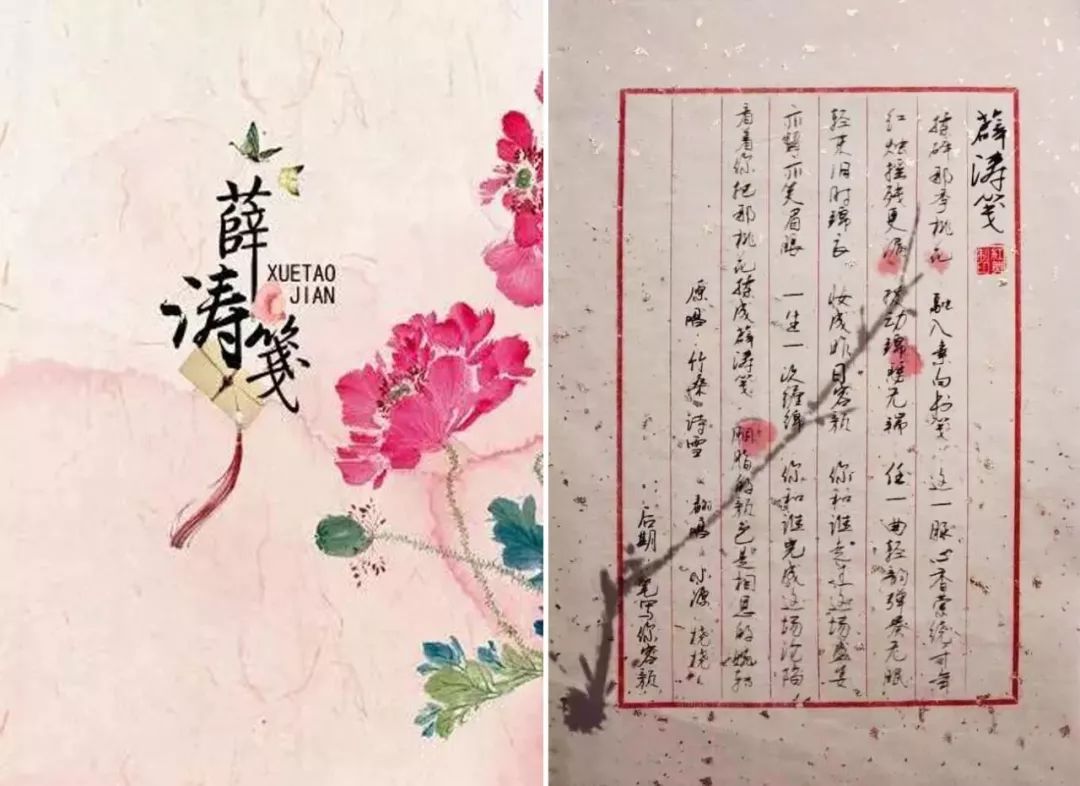 薛
涛
笺
XUETAO
JIAN
薛涛笺
揉碎那季桃花 融入素白书笺 这一脉心香萦绕可
红烛摇残更漏 拨动锦瑟无端 任一曲轻韵弹奏无眠
轻束旧时锦衣 妆成昨日容颜 你和谁走过这场盛宴
亦颦亦笑眉眼 一生一次缠绵 你和谁完成这场沦陷
看着你把那桃花揉成薛涛笺 胭脂的颜色是相思的
原唱 竹桑诗雪 翻唱 水源 桡桡
后期 笔写你容颜